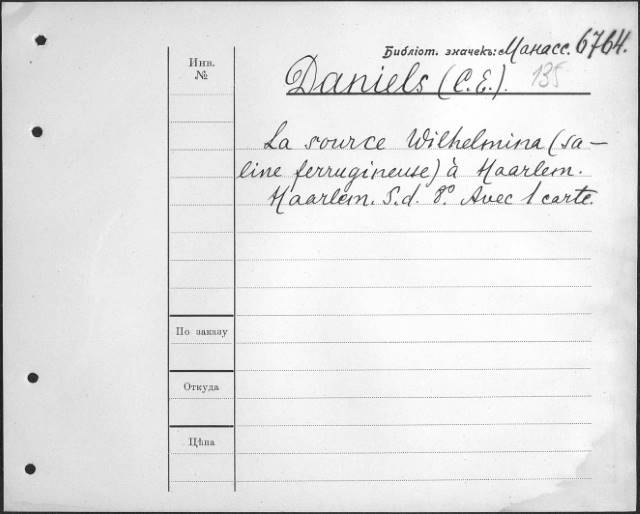 Библіот. значекъ: Манасс. 6764.
Инв.
№
Daniels (C.E.). 135
La source Wilhelmina (sa-
line ferrugineuse) à Haarlem.
Haarlem. S.d. 8º. Avec 1 carte.
По заказу
Откуда
Цѣна